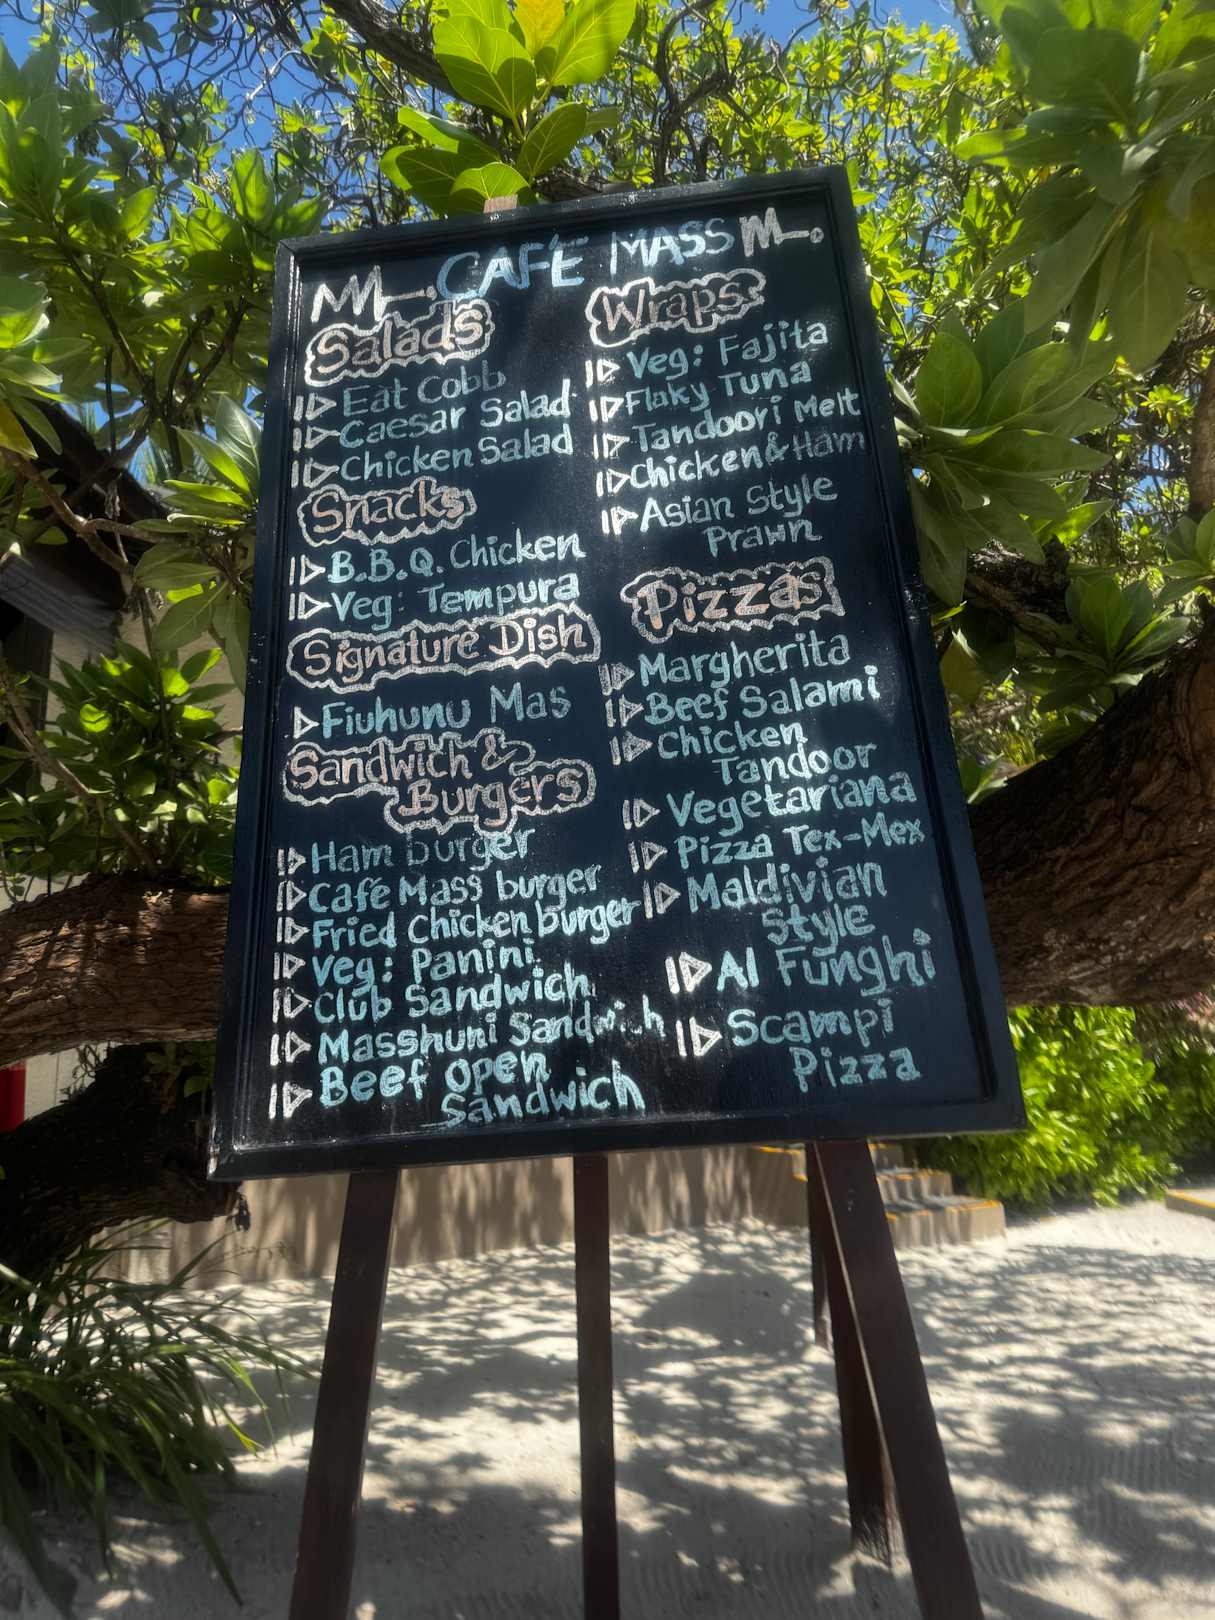 CAFÉ MASS
Salads
Eat Cobb
Caesar Salad
Chicken Salad
Snacks
B.B.Q. Chicken
Veg: Tempura
Signature Dish
Fiuhunu Mas
Sandwich &
Burgers
Ham burger
Café Mass burger
Fried Chicken burger
Veg: Panini
Club Sandwich
Masshuni Sandwich
Beef open
Sandwich
Wraps
Veg: Fajita
Flaky Tuna
Tandoori Melt
Chicken & Ham
Asian Style
Prawn
Pizzas
Margherita
Beef Salami
Chicken
Tandoor
Vegetariana
Pizza Tex-Mex
Maldivian
Style
Al Funghi
Scampi
Pizza